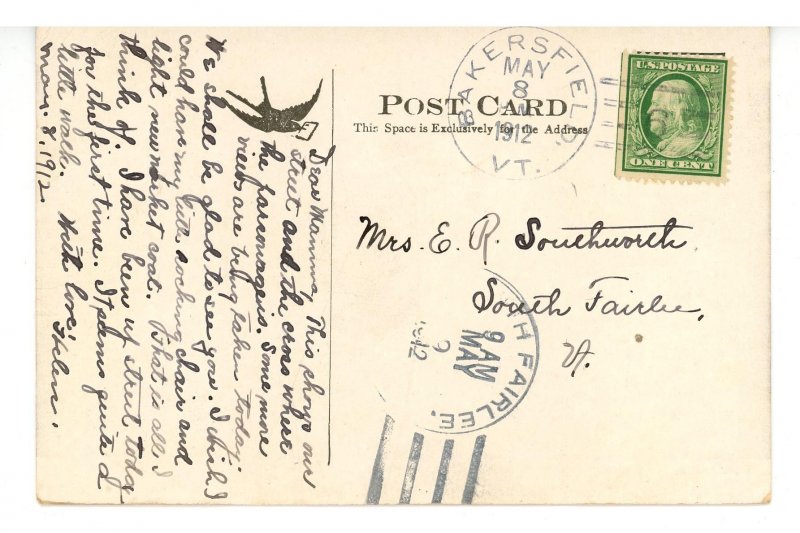 POST CARD
This Space is Exclusively for the Address
BAKERSFIELD, VT.
MAY
8
1912
U.S. POSTAGE
ONE CENT
Mrs. E. R. Southworth
South Fairlee,
Vt.
H FAIRLEE,
9 AM
MAY
9
1912
Dear Mamma, This shows our
street and the cross where
the parsonage is. Some more
views are being taken today.
We shall be glad to see you. I wish I
could have my little rocking chair and
light newmarket coat. That is all I
think of. I have been up street today
for the first time. It seems quite a
little walk. With love,
Helen.
May. 8, 1912